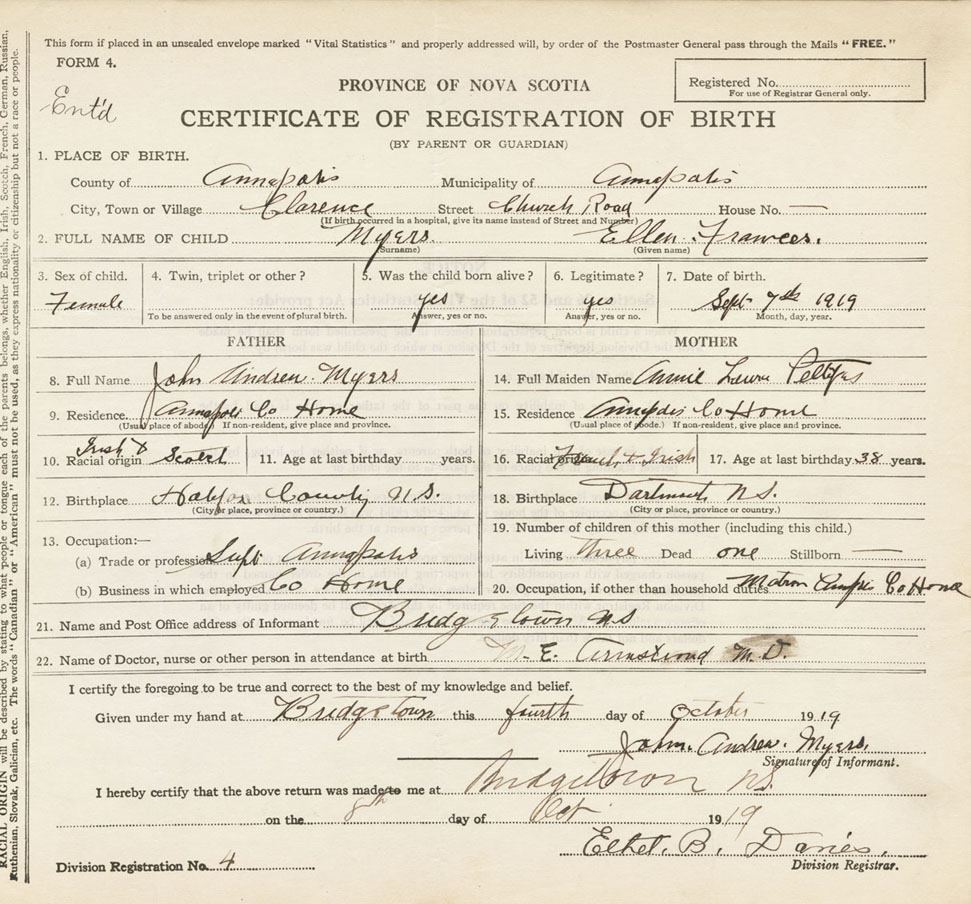 This form if placed in an unsealed envelope marked "Vital Statistics" and properly addressed will, by order of the Postmaster General pass through the Mails "FREE."
FORM 4.
Ent'd
PROVINCE OF NOVA SCOTIA
Registered No.
For use of Registrar General only.
CERTIFICATE OF REGISTRATION OF BIRTH
(BY PARENT OR GUARDIAN)
1. PLACE OF BIRTH.
County of Annapolis Municipality of Annapolis
City, Town or Village Clarence Street Church Road House No. —
(If birth occurred in a hospital, give its name instead of Street and Number)
2. FULL NAME OF CHILD Myers Ellen Frances.
(Surname) (Given name)
3. Sex of child. 4. Twin, triplet or other? 5. Was the child born alive? 6. Legitimate? 7. Date of birth.
Female yes yes Sept 7th 1919
To be answered only in the event of plural birth. Answer, yes or no. Answer, yes or no. Month, day, year.
FATHER MOTHER
8. Full Name John Andrew Myers
14. Full Maiden Name Annie
9. Residence Annapolis Co Home
(Usual place of abode.) If non-resident, give place and province.
15. Residence Annapolis Co Home
(Usual place of abode.) If non-resident, give place and province.
10. Racial origin Irish & Scotch 11. Age at last birthday years.
16. Racial origin French & Irish 17. Age at last birthday 38 years.
12. Birthplace Halifax County N.S.
(City or place, province or country.)
18. Birthplace Dartmouth N.S.
(City or place, province or country.)
13. Occupation:—
(a) Trade or profession Supt Annapolis
(b) Business in which employed Co Home
19. Number of children of this mother (including this child.)
Living three Dead one Stillborn —
20. Occupation, if other than household duties Matron Co Home
21. Name and Post Office address of Informant Bridgetown NS
22. Name of Doctor, nurse or other person in attendance at birth M. E. Armstrong M.D.
I certify the foregoing to be true and correct to the best of my knowledge and belief.
Given under my hand at Bridgetown this fourth day of October 1919
John Andrew Myers.
Signature of Informant.
I hereby certify that the above return was made to me at Bridgetown NS.
on the 8th day of Oct 1919
Ethel. B. Davies.
Division Registrar.
Division Registration No. 4
RACIAL ORIGIN will be described by stating to what people or tongue each of the parents belongs, whether English, Irish, Scotch, French, German, Russian,
Ruthenian, Slovak, Galician, etc. The words "Canadian" or "American" must not be used, as they express nationality or citizenship but not a race or people.